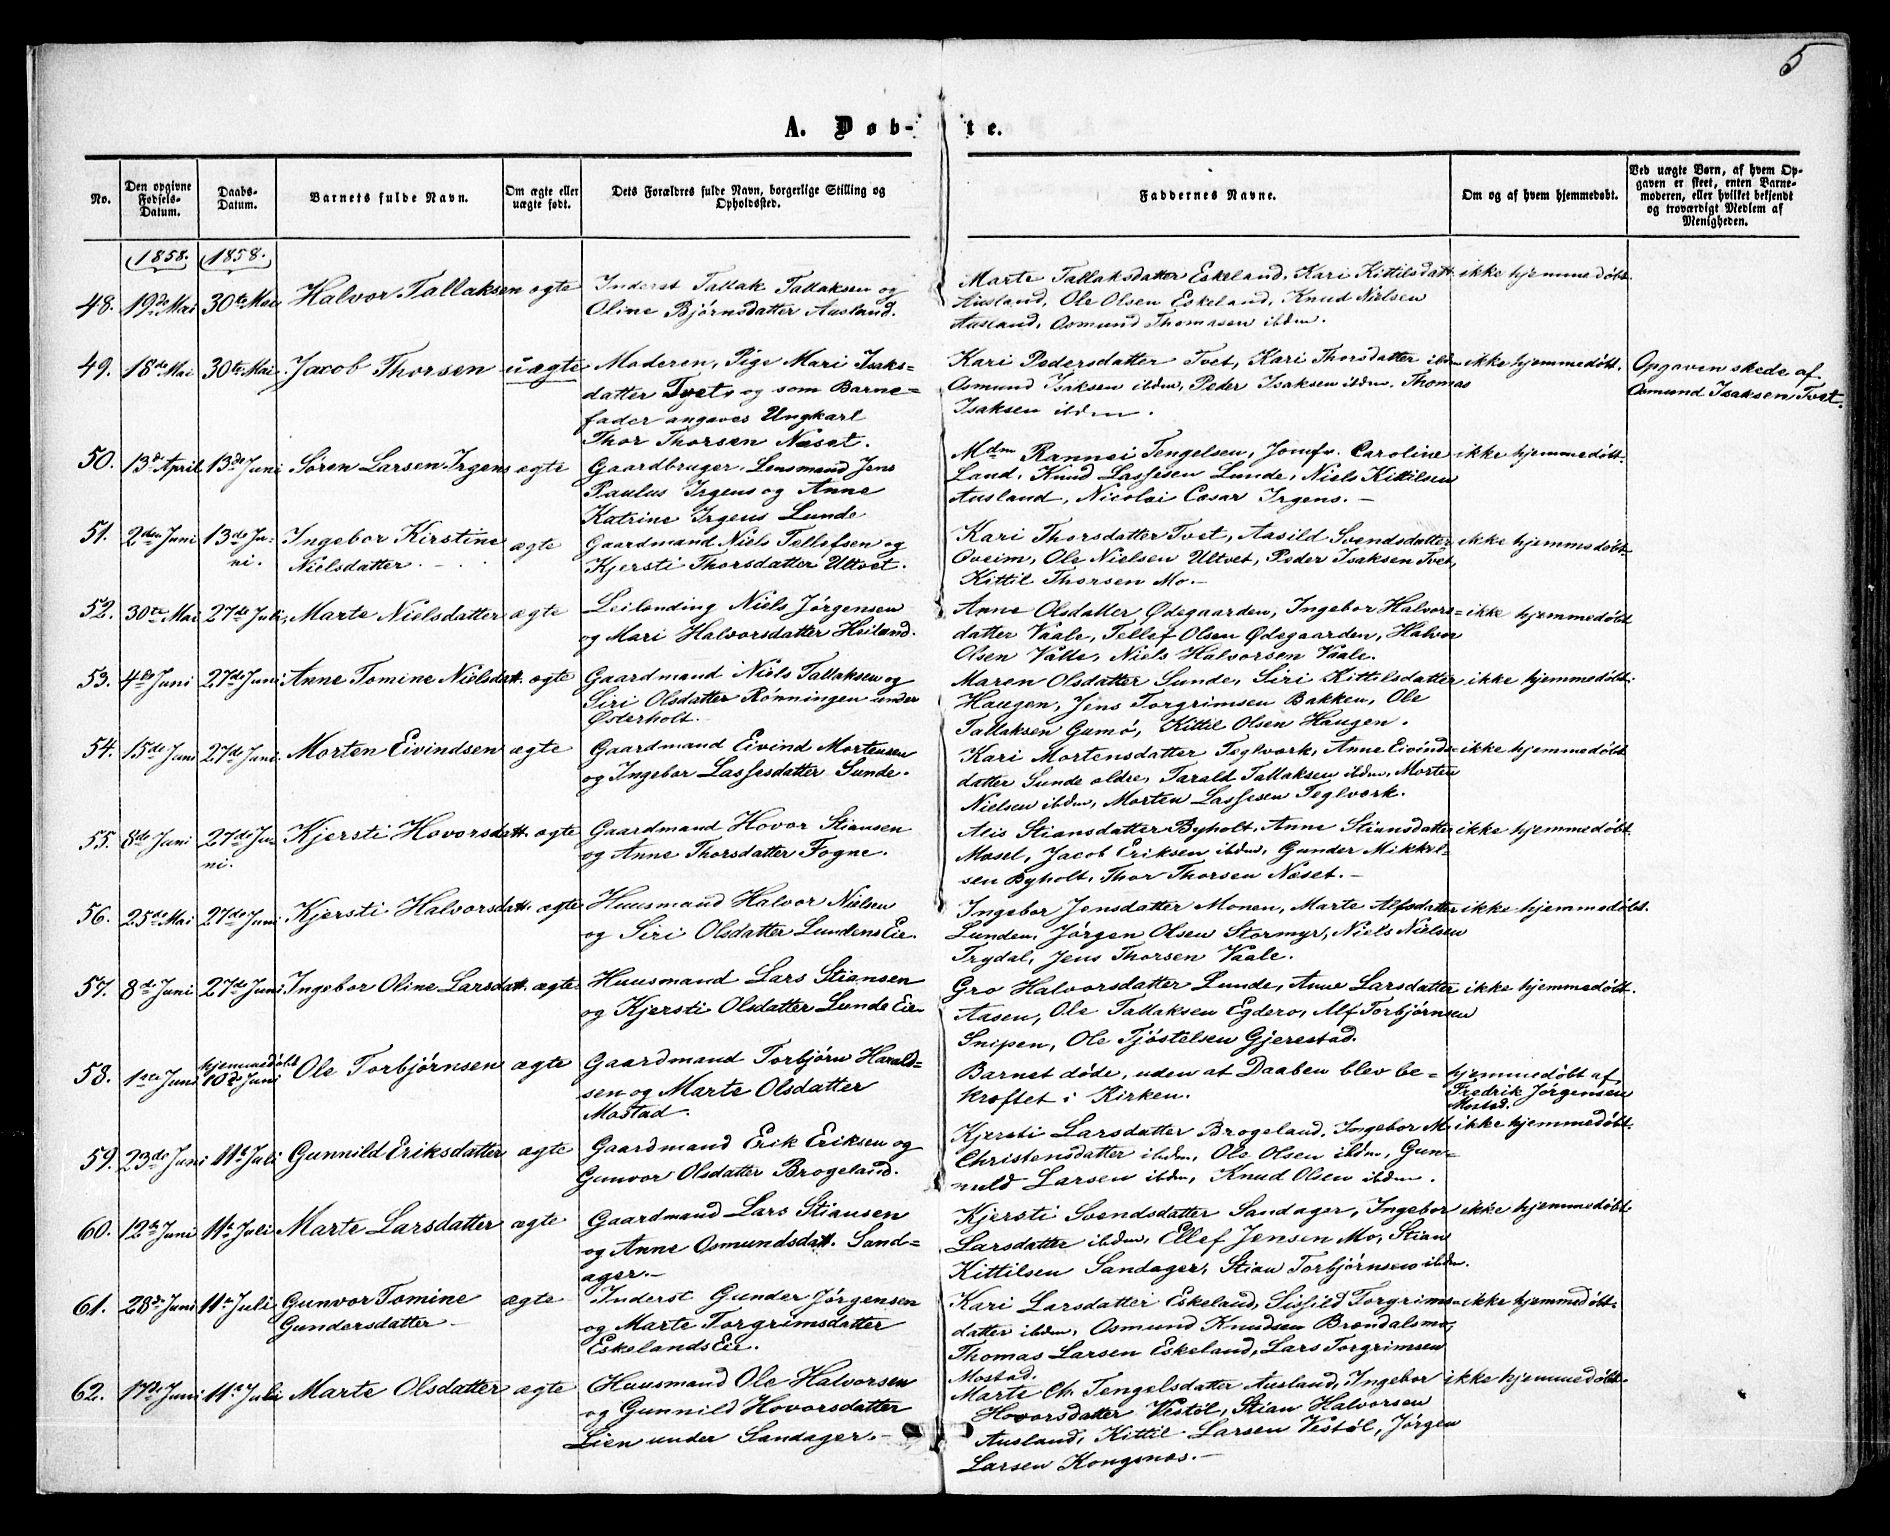 5
A. Døb- te.
No.
Den opgivne
Fødsels-
Datum.
Daabs-
Datum.
Barnets fulde Navn.
Om ægte eller
uægte født.
Dets Forældres fulde Navn, borgerlige Stilling og
Opholdssted.
Faddernes Navne.
Om og af hvem hjemmedøbt.
Ved uægte Børn, af hvem Op-
gaven er skeet, enten Barne-
moderen, eller hvilket bekjendt
og troværdigt Medlem af
Menigheden.
1858. 1858.
48. 19de Mai 30te Mai Halvor Tallaksen ægte
Inderst Tallak Tallaksen og
Oline Bjørnsdatter Ausland.
Marte Tallaksdatter Eskeland, Kari Kittilsdatt.
Ausland, Ole Olsen Eskeland, Knud Nielsen
Ausland, Osmund Thomasen ibdm.
ikke hjemmedøbt.
49. 18de Mai 30te Mai Jacob Thorsen uægte
Moderen, Pige Mari Isaks-
datter Tvet, og som Barne-
fader angaves Ungkarl
Thor Thorsen Næset.
Kari Pedersdatter Tvet, Kari Thorsdatter ibdm
Osmund Isaksen ibdm, Peder Isaksen ibdm. Thomas
Isaksen ibdm.
ikke hjemmedøbt.
Opgaven skede af
Osmund Isaksen Tvet.
50. 13de April 13de Juni Søren Larsen Irgens ægte
Gaardbruger Lensmand Jens
Paulus Irgens og Anne
Katrine Irgens Lunde
Mdm Rannei Tengelsen, Jomfr. Caroline
Land, Knud Lassesen Lunde, Niels Kittilsen
Ausland, Nicolai Cæsar Irgens.
ikke hjemmedøbt.
51. 2den Juni 13de Ju-
ni.
Ingebor Kirstine
Nielsdatter.
ægte
Gaardmand Niels Tellefsen og
Kjersti Thorsdatter Ultvet.
Kari Thorsdatter Tvet, Aasild Svendsdatter
Oveim, Ole Nielsen Ultvet, Peder Isaksen Tvet,
Kittil Thorsen Mo.
ikke hjemmedøbt.
52. 30te Mai 27de Juli, Marte Nielsdatter ægte
Leilending Niels Jørgensen
og Mari Halvorsdatter Heiland.
Anne Olsdatter Ødegaarden, Ingebor Halvors-
datter Vaale, Tellef Olsen Ødegaarden, Halvor
Olsen Valle, Niels Halvorsen Vaale.
ikke hjemmedøbt
53. 4de Juni 27de Juni Anne Tomine Nielsdatt. ægte
Gaardmand Niels Tallaksen og
Siri Olsdatter Rønningen under
Østerholt.
Maren Olsdatter Sunde, Siri Kittilsdatter
Haugen, Jens Torgrimsen Bakken, Ole
Tallaksen Gumø, Kittil Olsen Haugen.
ikke hjemmedøbt.
54. 15de Juni 27de Juni. Morten Eivindsen ægte
Gaardmand Eivind Mortensen
og Ingebor Lassesdatter Sunde.
Kari Mortensdatter Teglverk, Anne Eivinds-
datter Sunde ældre, Tarald Tallaksen ibdm, Morten
Nielsen ibdm, Morten Lassesen Teglverk.
ikke hjemmedøbt
55. 8de Juni 27de Ju-
ni.
Kjersti Hovorsdatt. ægte
Gaardmand Hovor Stiansen
og Anne Thorsdatter Fogne.
Alis Stiansdatter Byholt, Anne Stiansdatter
Mosel, Jacob Eriksen ibdm, Gunder Mikkel-
sen Byholt, Thor Thorsen Næset.
ikke hjemmedøbt.
56. 25de Mai 27de Juni Kjersti Halvorsdatt. ægte
Huusmand Halvor Nielsen
og Siri Olsdatter Lundens Eie.
Ingebor Jensdatter Monen, Marte Alfsdatter
Lunden, Jørgen Olsen Stormyr, Niels Nielsen
Trydal, Jens Thorsen Vaale.
ikke hjemmedøbt.
57. 8de Juni 27de Juni. Ingebor Oline Larsdatt. ægte
Huusmand Lars Stiansen
og Kjersti Olsdatter Lunde Eie
Gro Halvorsdatter Lunde, Anne Larsdatter
Aasen, Ole Tallaksen Egdero, Alf Torbjørnsen
Snipen, Ole Tjøstelsen Gjerestad.
ikke hjemmedøbt.
58. 1ste Juni hjemmedøbt
10de Juni
Ole Torbjørnsen ægte
Gaardmand Torbjørn Harald-
sen og Marte Olsdatter
Mostad.
Barnet døde, uden at Daaben blev be-
kræftet i Kirken.
hjemmedøbt af
Fredrik Jørgensen
Mostad.
59. 23de Juni 11te Juli Gunnild Eriksdatter ægte
Gaardmand Erik Eriksen og
Gunvor Olsdatter Brogeland.
Kjersti Larsdatter Brogeland, Ingebor M.
Christensdatter ibdm, Ole Olsen ibdm, Gun-
nuld Larsen ibdm, Knud Olsen ibdm.
ikke hjemmedøbt.
60. 12te Juni 11te Juli Marte Larsdatter ægte
Gaardmand Lars Stiansen
og Anne Osmundsdatt. Sand-
ager.
Kjersti Svendsdatter Sandager, Ingebor
Larsdatter ibdm, Ellef Jensen Mo, Stian
Kittilsen Sandager, Stian Torbjørnsen ibdm.
ikke hjemmedøbt
61. 28de Juni 11te Juli Gunvor Tomine
Gundersdatter
ægte
Inderst Gunder Jørgensen
og Marte Torgrimsdatter
Eskelands Eie.
Kari Larsdatter Eskeland, Sisfild Torgrims-
datter ibdm, Osmund Knudsen Brændalsmo,
Thomas Larsen Eskeland, Lars Torgrimsen
Mostad.
ikke hjemmedøbt
62. 17de Juni 11te Juli Marte Olsdatter ægte
Huusmand Ole Halvorsen
og Gunnild Hovorsdatter
Lien under Sandager.
Marte Ch. Tengelsdatter Ausland, Ingebor
Hovorsdatter Vestøl, Stian Halvorsen
Ausland, Kittil Larsen Vestøl, Jørgen
Larsen Kongenæs.
ikke hjemmedøbt.